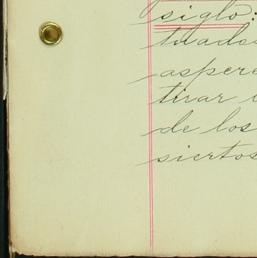 siglo:
tuados
aspere
tirar
de los
siertos